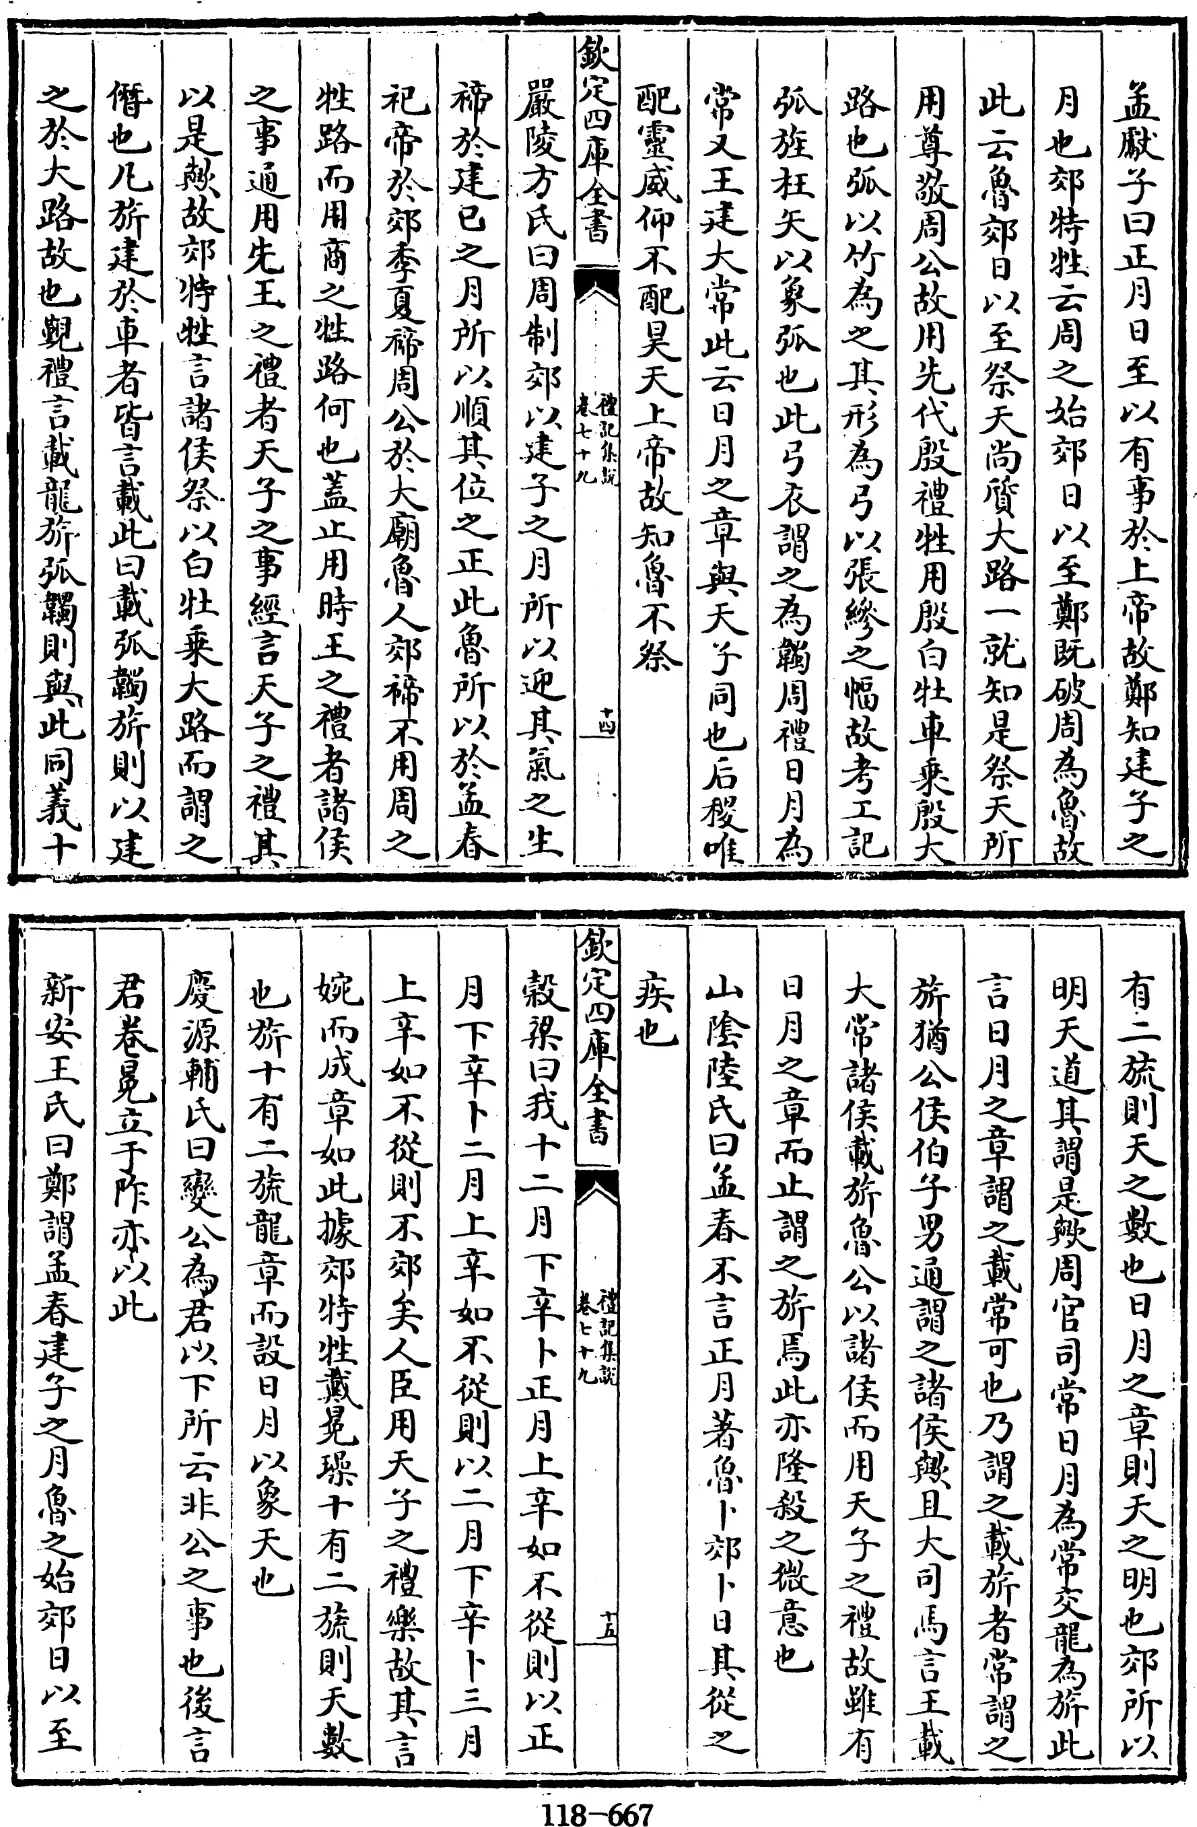 孟獻子曰正月日至以有事於上帝故鄭知建子之
月也郊特牲云周之始郊日以至鄭既破周為魯故
此云魯郊日以至祭天尚質大路一就知是祭天所
用尊敬周公故用先代殷禮牲用殷白牡車乘殷大
路也弧以竹為之其形為弓以張縿之幅故考工記
弧旌枉矢以象弧也此弓衣謂之為韣周禮日月為
常又王建大常此云日月之章與天子同也后稷唯
配靈威仰不配昊天上帝故知魯不祭
欽定四庫全書
禮記集說
卷七十九
十四
嚴陵方氏曰周制郊以建子之月所以迎其氣之生
禘於建巳之月所以順其位之正此魯所以於孟春
祀帝於郊季夏禘周公於大廟魯人郊禘不用周之
牲路而用商之牲路何也蓋止用時王之禮者諸侯
之事通用先王之禮者天子之事經言天子之禮其
以是歟故郊特牲言諸侯祭以白牡乘大路而謂之
僭也凡旂建於車者皆言載此曰載弧韣旂則以建
之於大路故也覲禮言載龍旂弧韣則與此同義十
有二旒則天之數也日月之章則天之明也郊所以
明天道其謂是歟周官司常日月為常交龍為旂此
言日月之章謂之載常可也乃謂之載旂者常謂之
旂猶公侯伯子男通謂之諸侯歟且大司馬言王載
大常諸侯載旂魯公以諸侯而用天子之禮故雖有
日月之章而止謂之旂焉此亦隆殺之微意也
山陰陸氏曰孟春不言正月著魯卜郊卜日其從之
疾也
欽定四庫全書
禮記集說
卷七十九
十五
穀梁曰我十二月下辛卜正月上辛如不從則以正
月下辛卜二月上辛如不從則以二月下辛卜三月
上辛如不從則不郊矣人臣用天子之禮樂故其言
婉而成章如此據郊特牲戴冕璪十有二旒則天數
也旂十有二旒龍章而設日月以象天也
慶源輔氏曰變公為君以下所云非公之事也後言
君卷冕立于阼亦以此
新安王氏曰鄭謂孟春建子之月魯之始郊日以至
118-667